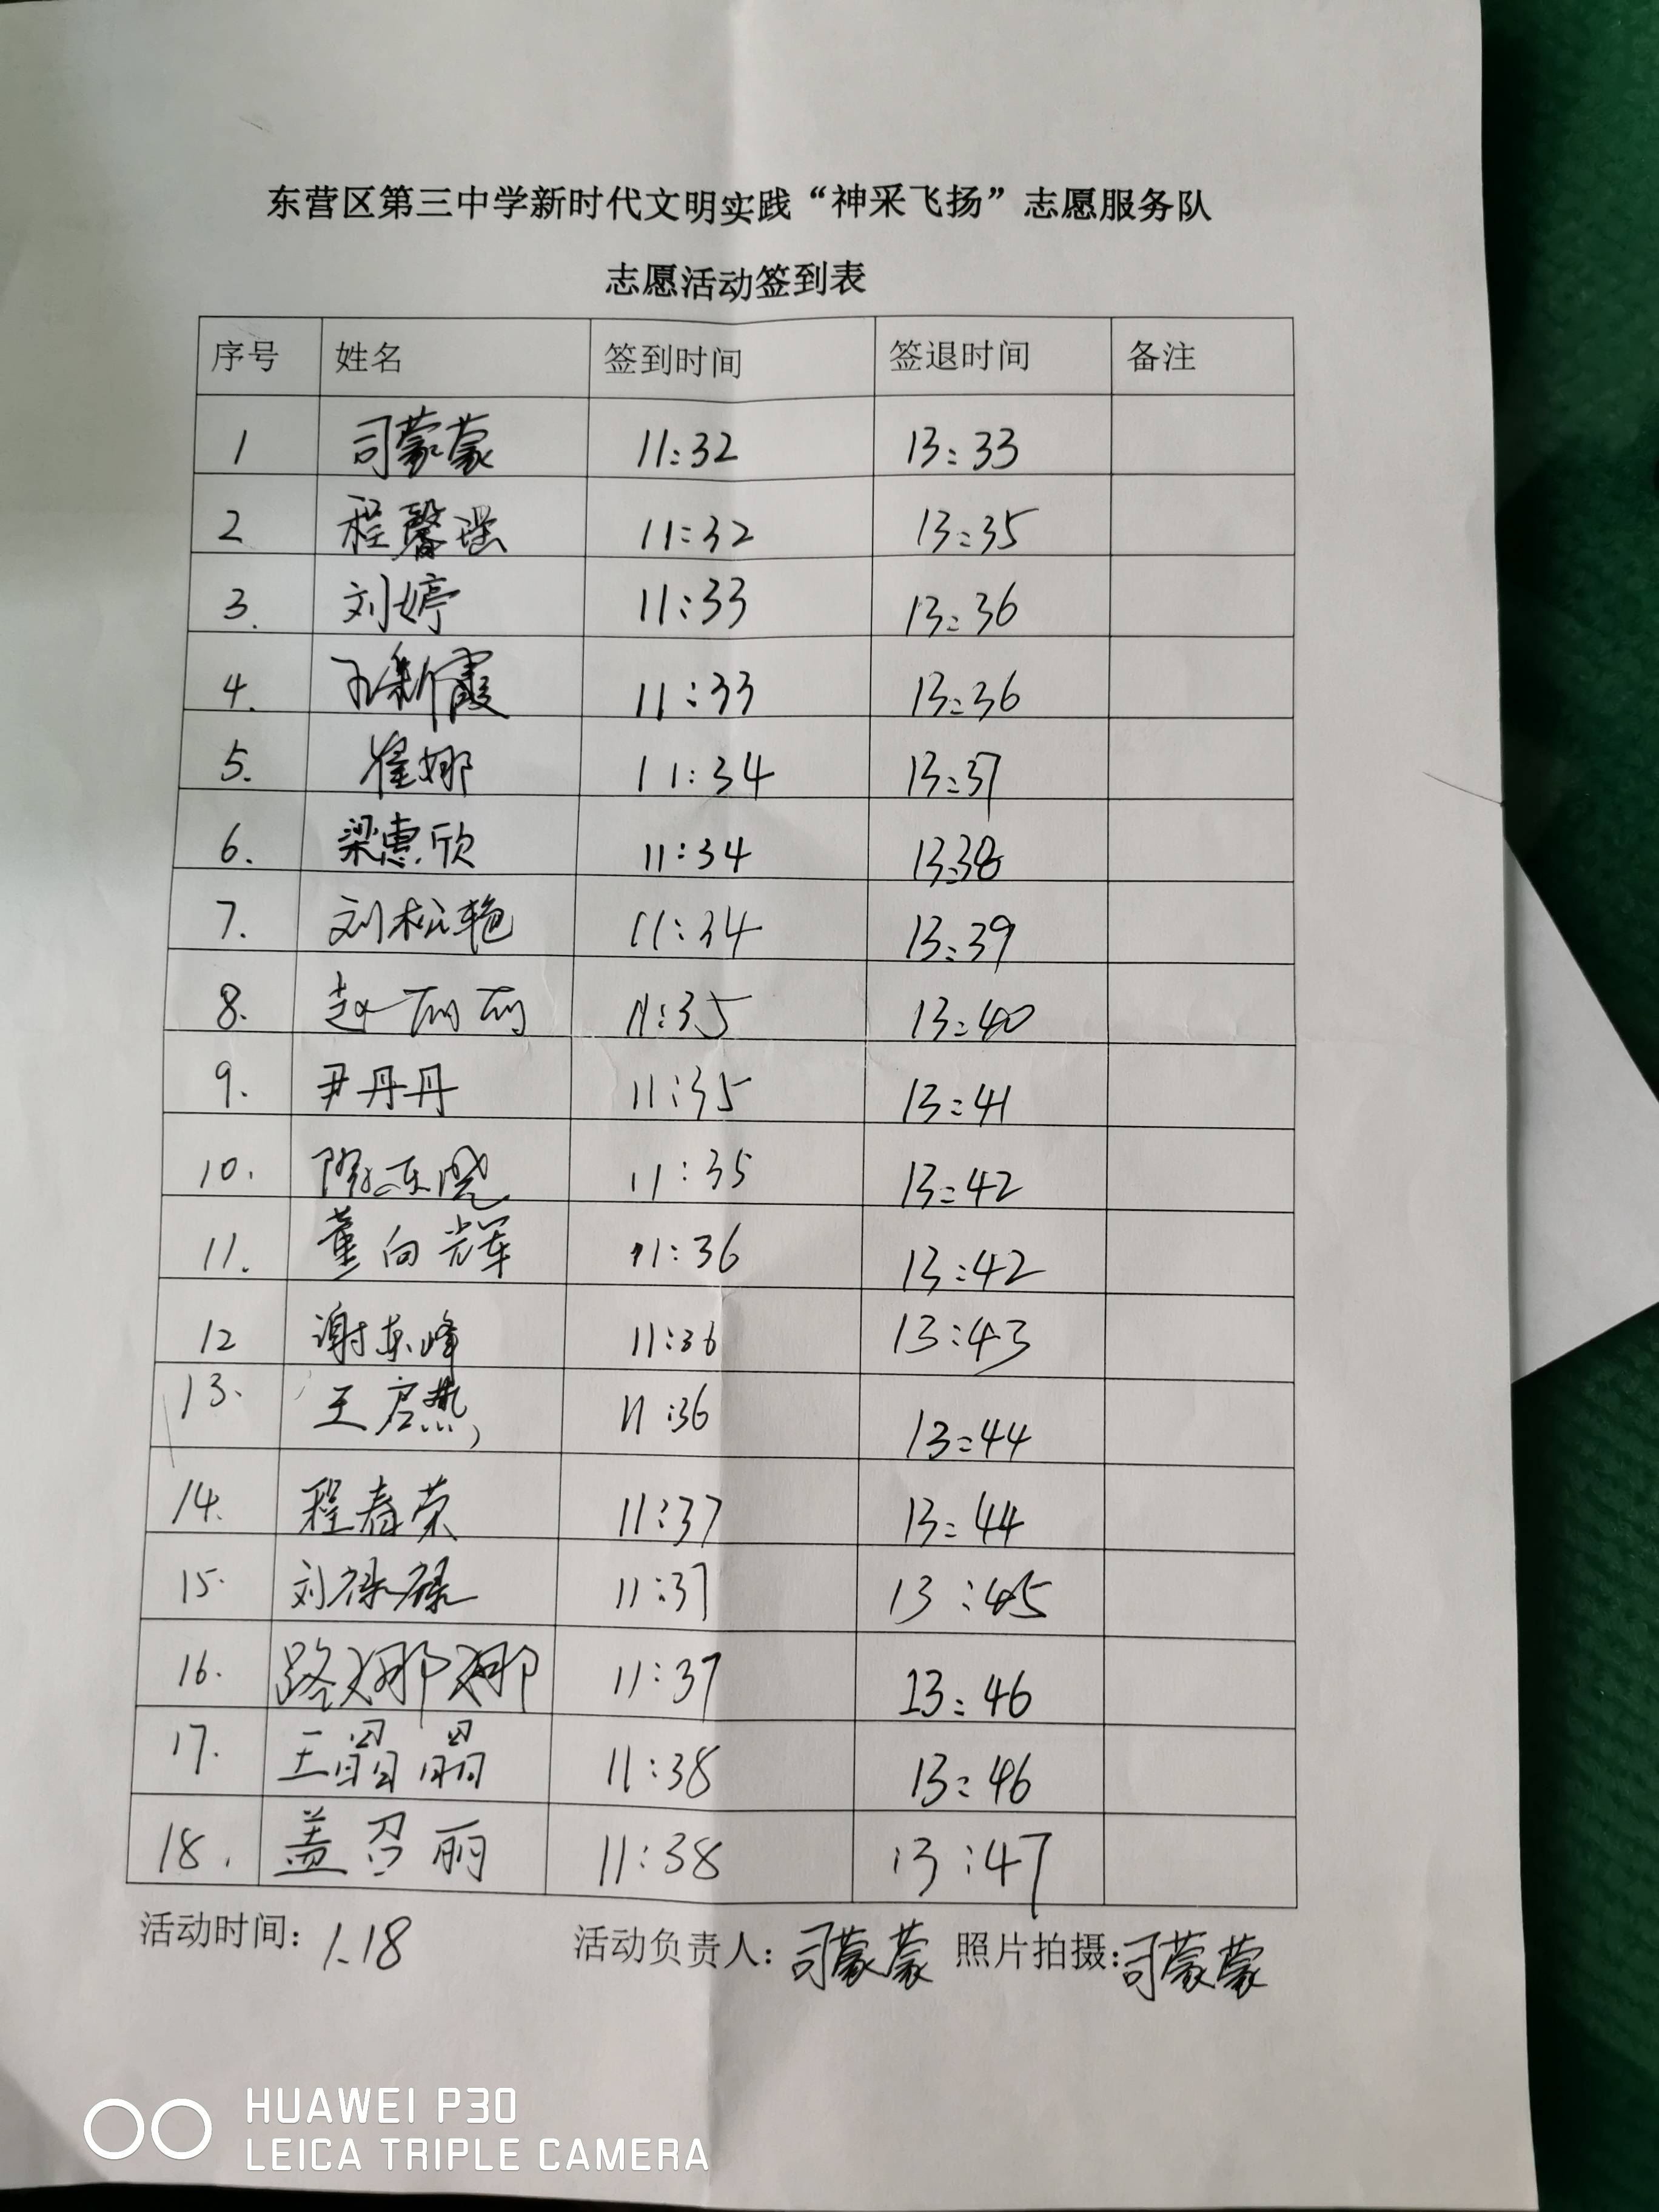 东营区第三中学新时代文明实践“神采飞扬”志愿服务队
志愿活动签到表
序号 姓名 签到时间 签退时间 备注
1 司蒙蒙 11:32 13:33
2 程馨瑶 11:32 13:35
3. 刘婷 11:33 13:36
4. 新霞 11:33 13:36
5. 崔娜 11:34 13:37
6. 梁惠欣 11:34 13:38
7. 刘松艳 11:34 13:39
8. 赵丽丽 11:35 13:40
9. 尹丹丹 11:35 13:41
10. 11:35 13:42
11. 董向辉 11:36 13:42
12 谢东峰 11:36 13:43
13. 王 11:36 13:44
14. 程春荣 11:37 13:44
15. 刘 11:37 13:45
16. 路娜娜 11:37 13:46
17. 王 11:38 13:46
18. 盖召丽 11:38 13:47
活动时间: 1.18 活动负责人: 司蒙蒙 照片拍摄: 司蒙蒙
HUAWEI P30
LEICA TRIPLE CAMERA